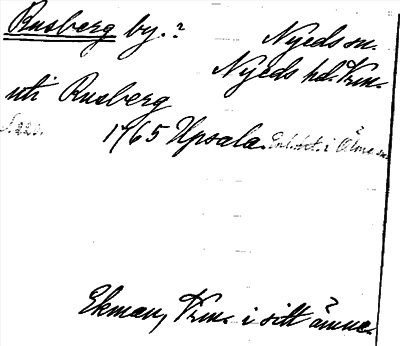 Rusberg by.?
Nyeds sn.
Nyeds hd. Vrm.
uti Rusberg
1765 Upsala. Enl. i Ölme sn
Ekman, Vrm. i sitt ämne.